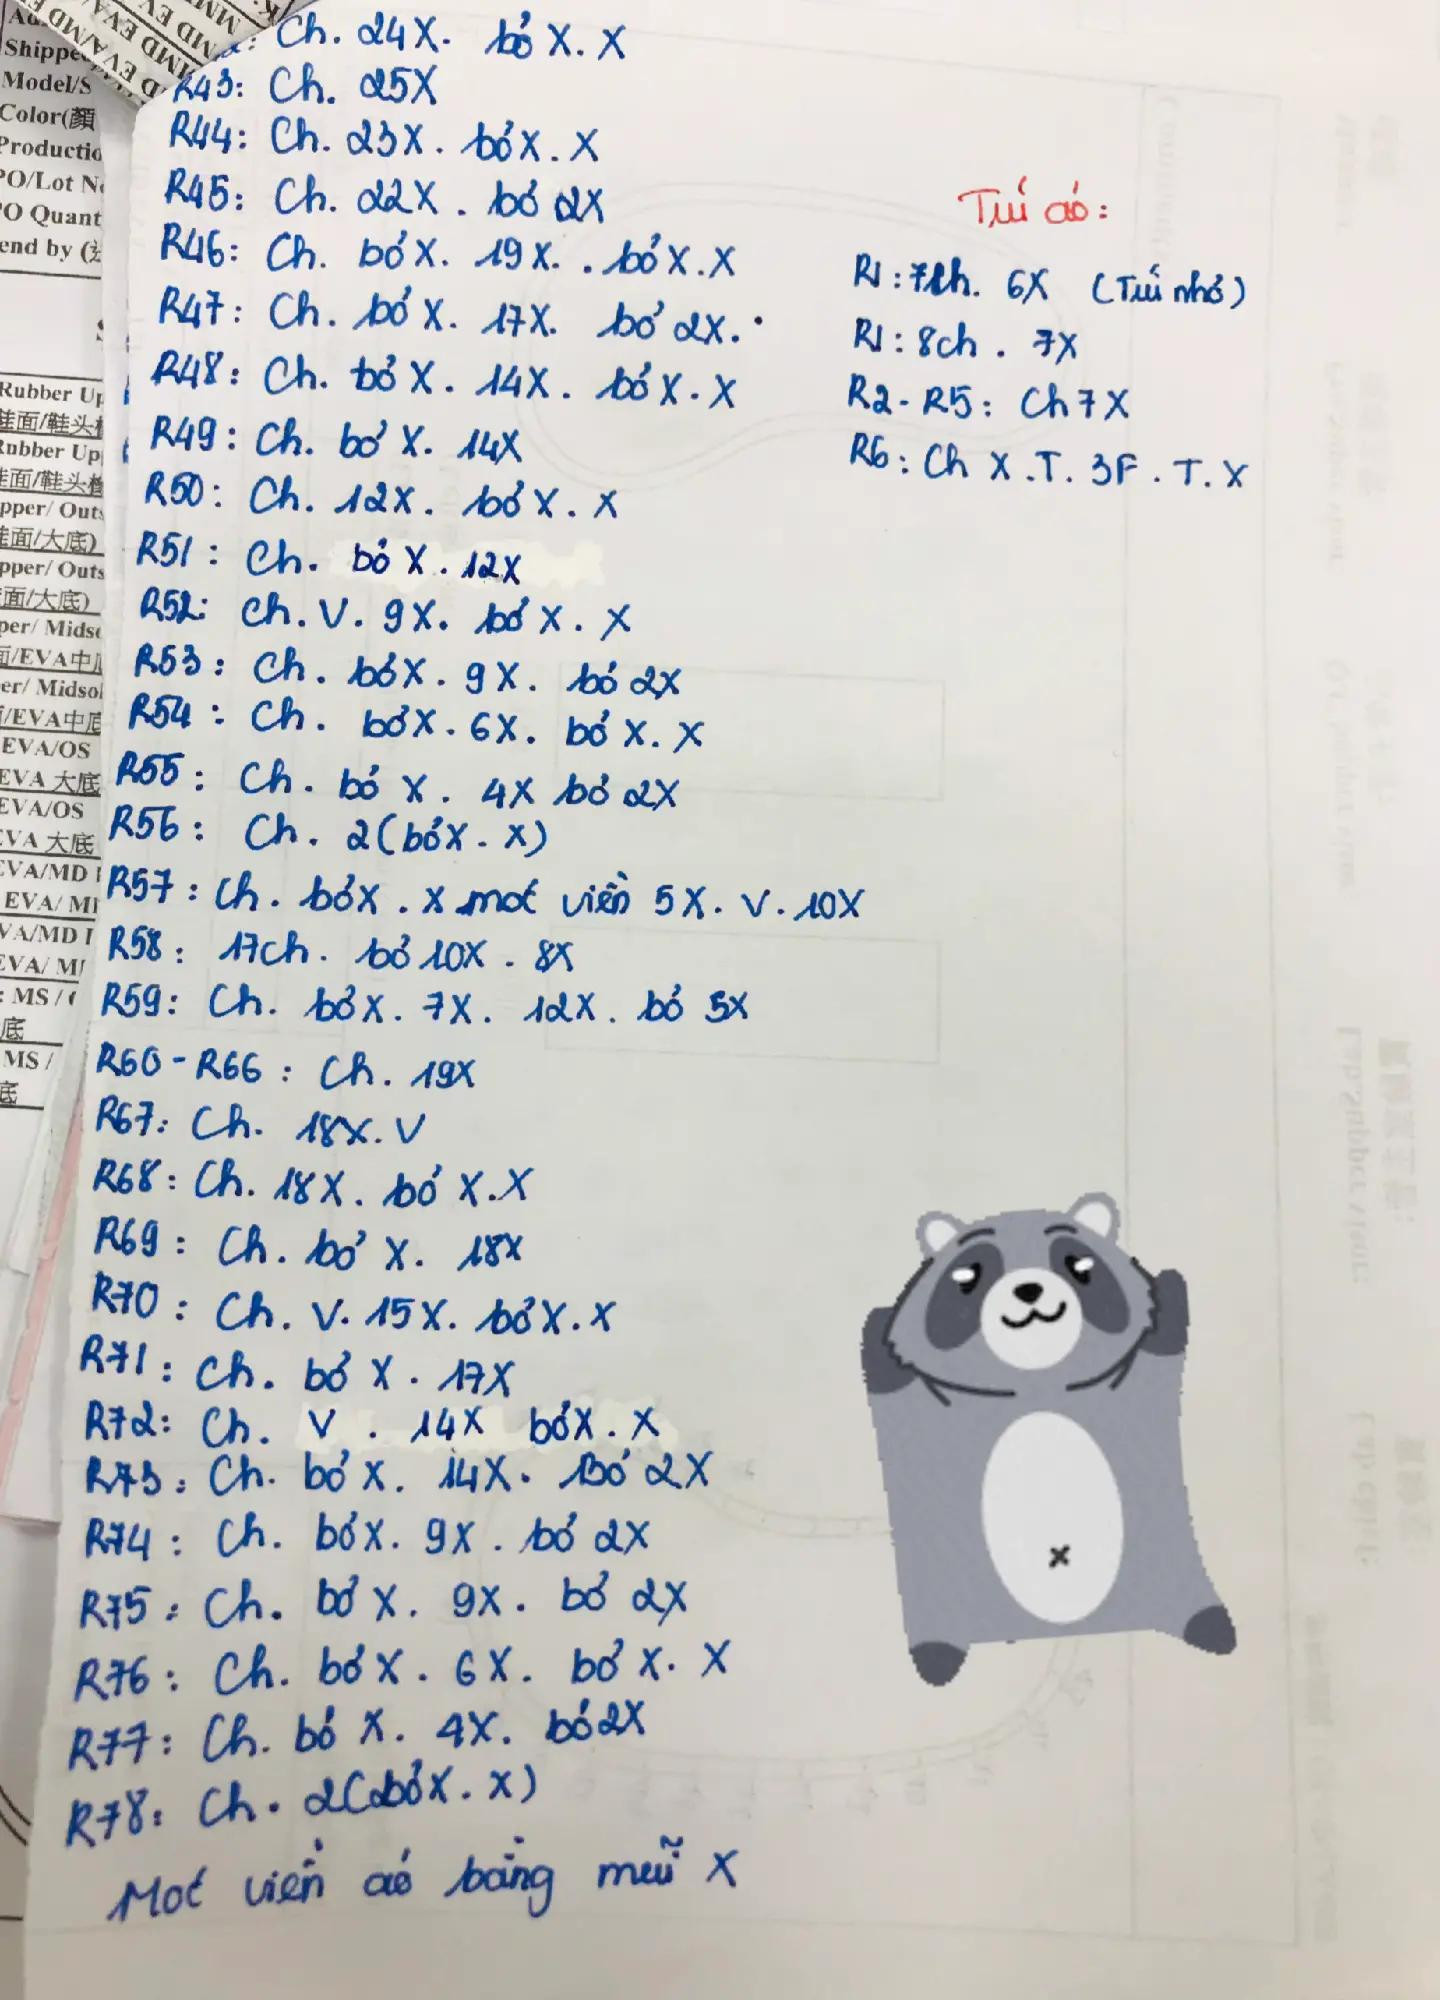 Ch. 24X. bỏ X. X
R43: Ch. 25X
R44: Ch. 23X. bỏ X. X
R45: Ch. 22X. bỏ 2X
R46: Ch. bỏ X. 19X. . bỏ X. X
R47: Ch. bỏ X. 17X. bỏ 2X.
R48: Ch. bỏ X. 14X. bỏ X. X
R49: Ch. bỏ X. 14X
R50: Ch. 12X. bỏ X. X
R51: Ch. bỏ X. 12X
R52: Ch. V. 9X. bỏ X. X
R53: Ch. bỏ X. 9X. bỏ 2X
R54: Ch. bỏ X. 6X. bỏ X. X
R55: Ch. bỏ X. 4X bỏ 2X
R56: Ch. 2(bỏ X. X)
R57: Ch. bỏ X. X móc viền 5X. V. 10X
R58: 17ch. bỏ 10X. 8X
R59: Ch. bỏ X. 7X. 12X. bỏ 5X
R60 - R66: Ch. 19X
R67: Ch. 18X. V
R68: Ch. 18X. bỏ X. X
R69: Ch. bỏ X. 18X
R70: Ch. V. 15X. bỏ X. X
R71: Ch. bỏ X. 17X
R72: Ch. V. 14X bỏ X. X
R73: Ch. bỏ X. 14X. Bỏ 2X
R74: Ch. bỏ X. 9X. bỏ 2X
R75: Ch. bỏ X. 9X. bỏ 2X
R76: Ch. bỏ X. 6X. bỏ X. X
R77: Ch. bỏ X. 4X. bỏ 2X
R78: Ch. 2(bỏ X. X)
Móc viền áo bằng mũi X
Túi áo:
R1: 7ch. 6X (Túi nhỏ)
R1: 8ch. 7X
R2 - R5: Ch 7X
R6: Ch X. T. 3F. T. X
Shippe
Model/S
Color(顏
Productio
PO/Lot N
O Quant
end by (
Rubber Up
鞋面/鞋头
Rubber Up
鞋面/鞋头
pper/ Outs
面/大底)
pper/ Outs
面/大底)
per/ Mids
/EVA中
er/ Midsol
/EVA中底
EVA/OS
EVA 大底
EVA/OS
EVA 大底
EVA/MD
EVA/ M
VA/MD
EVA/ M
: MS /
底
MS /
底